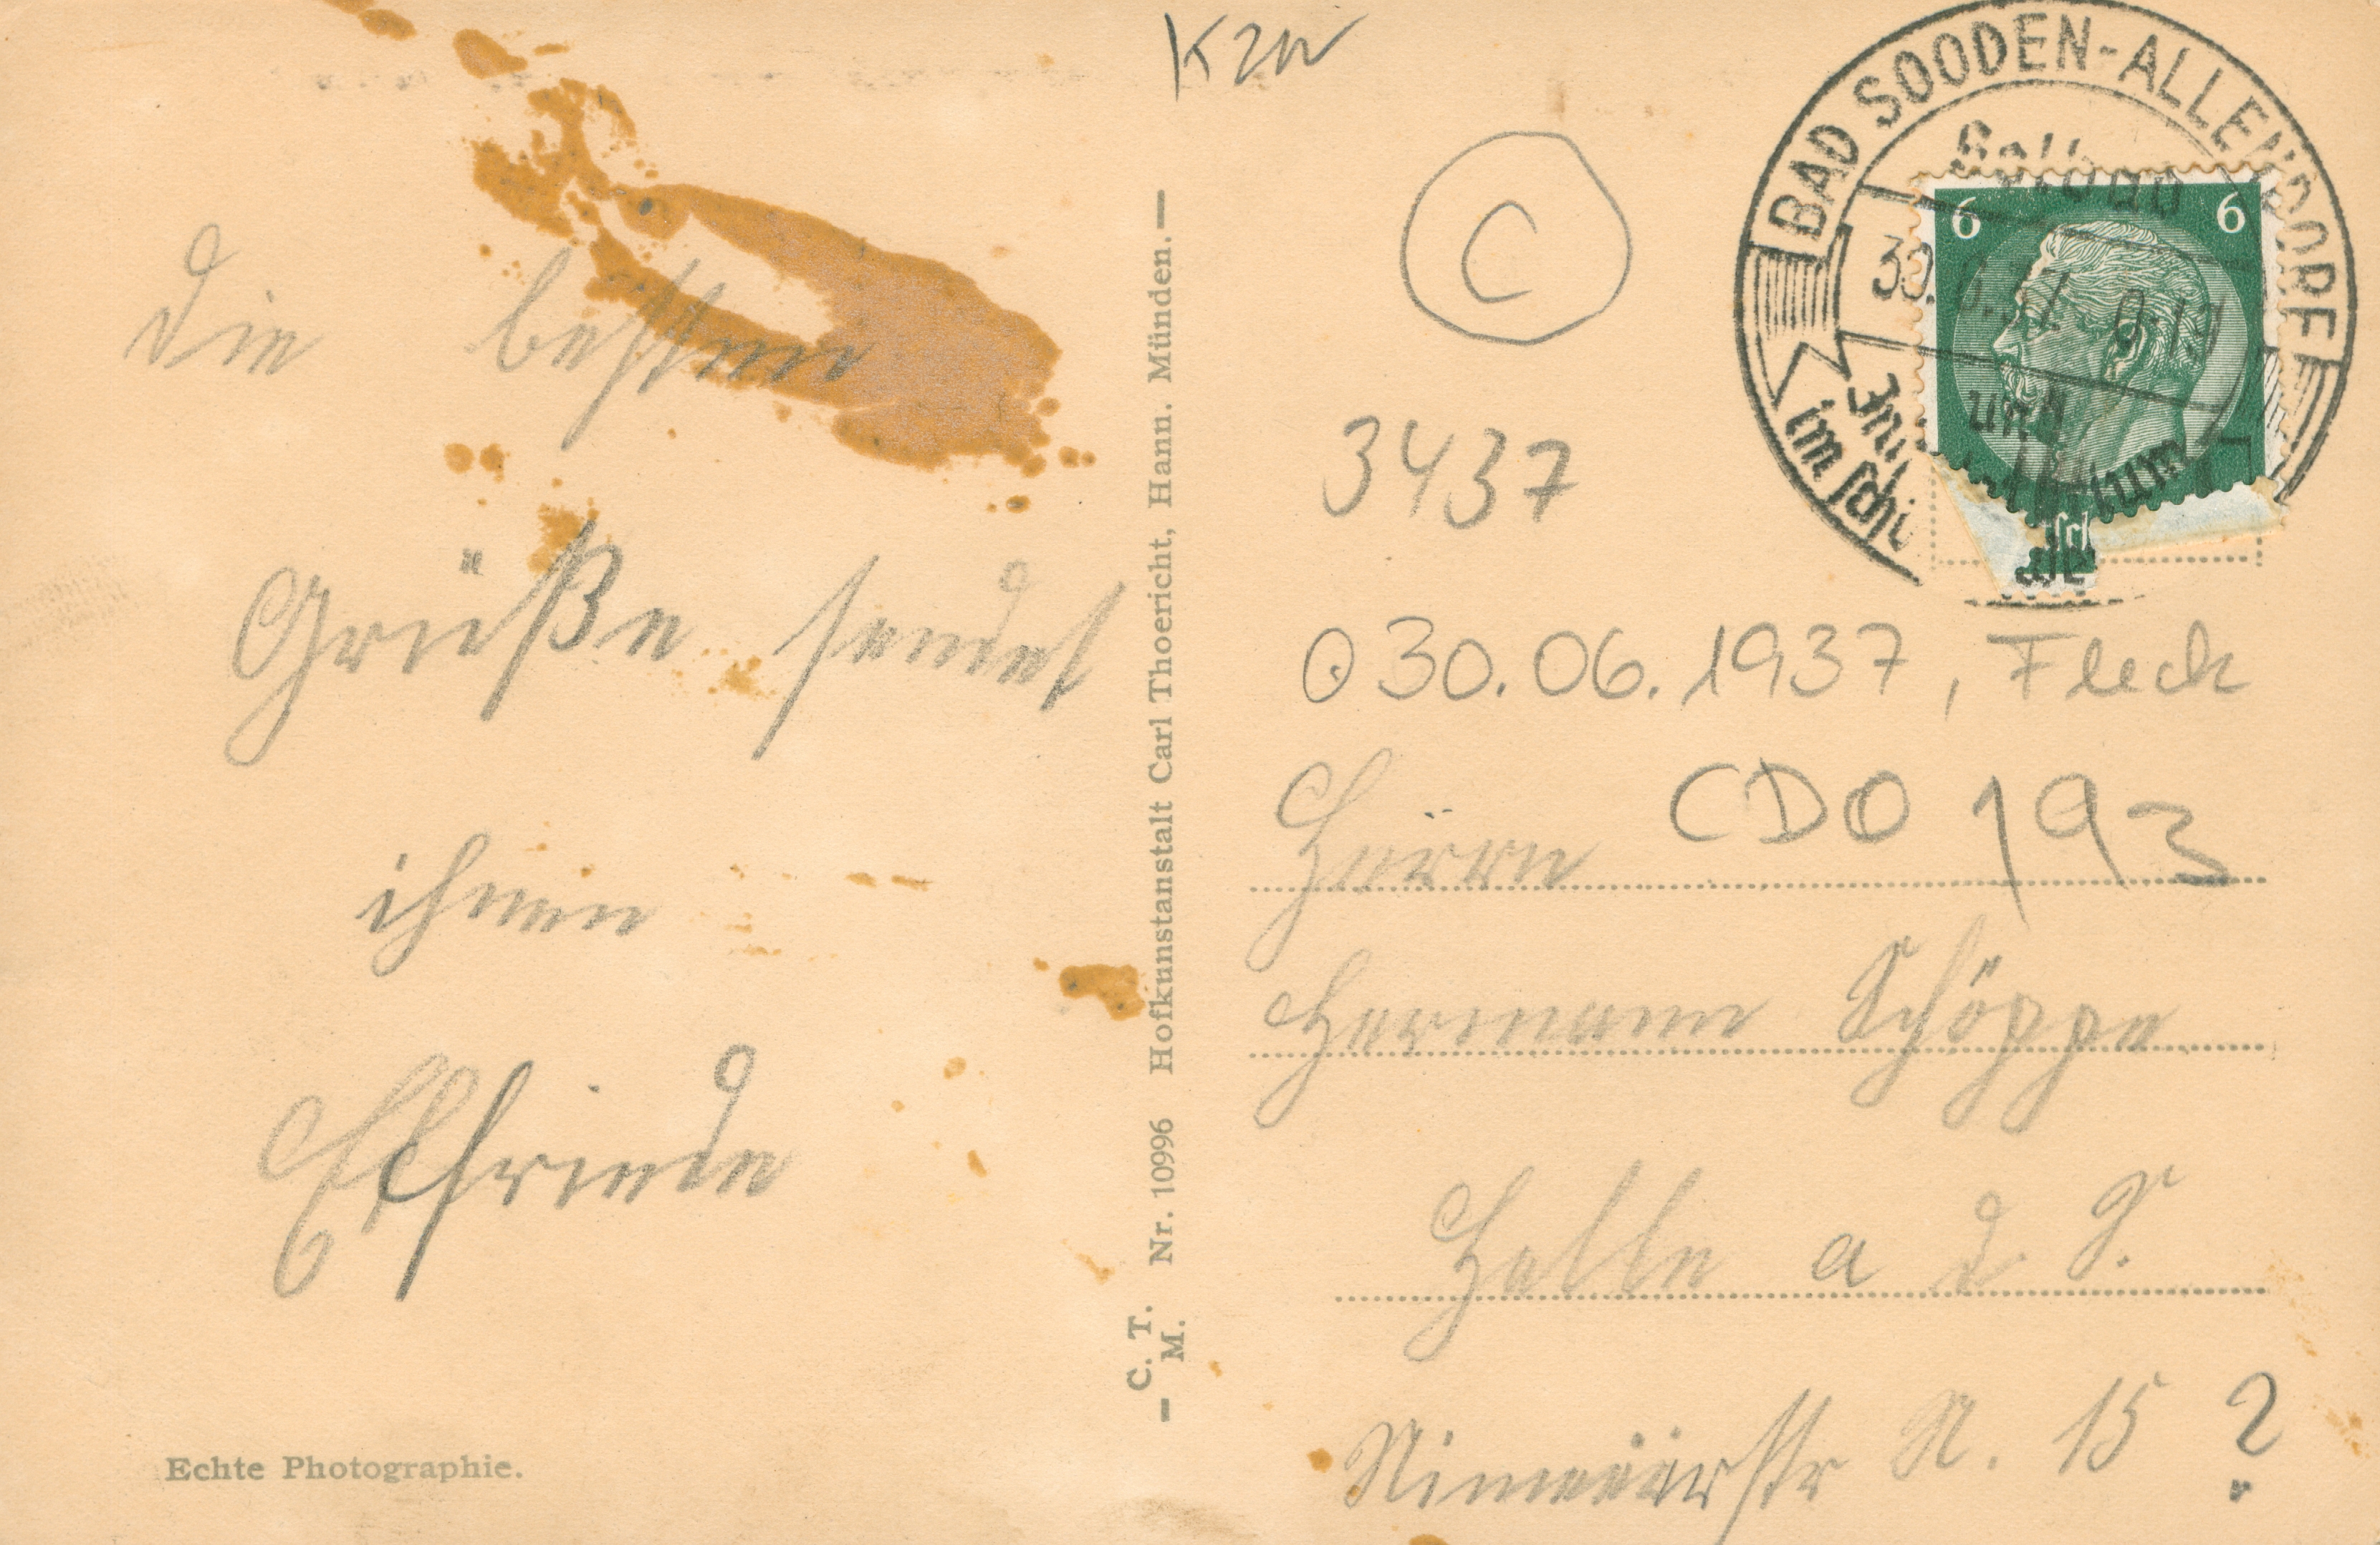 K2W
BAD SOODEN-ALLENDORF
Solbad
30.6.37
6 6
im
C
3437
30.06.1937, Fleck
CDO 193
Die besten
Grüße sendet
ihnen
Elfriede
Echte Photographie.
C. T. M. Nr. 10996 Hofkunstanstalt Carl Thoericht, Hann. Münden.
Herrn
Hermann Schöppe
Halle a d S.
N. 15 ?